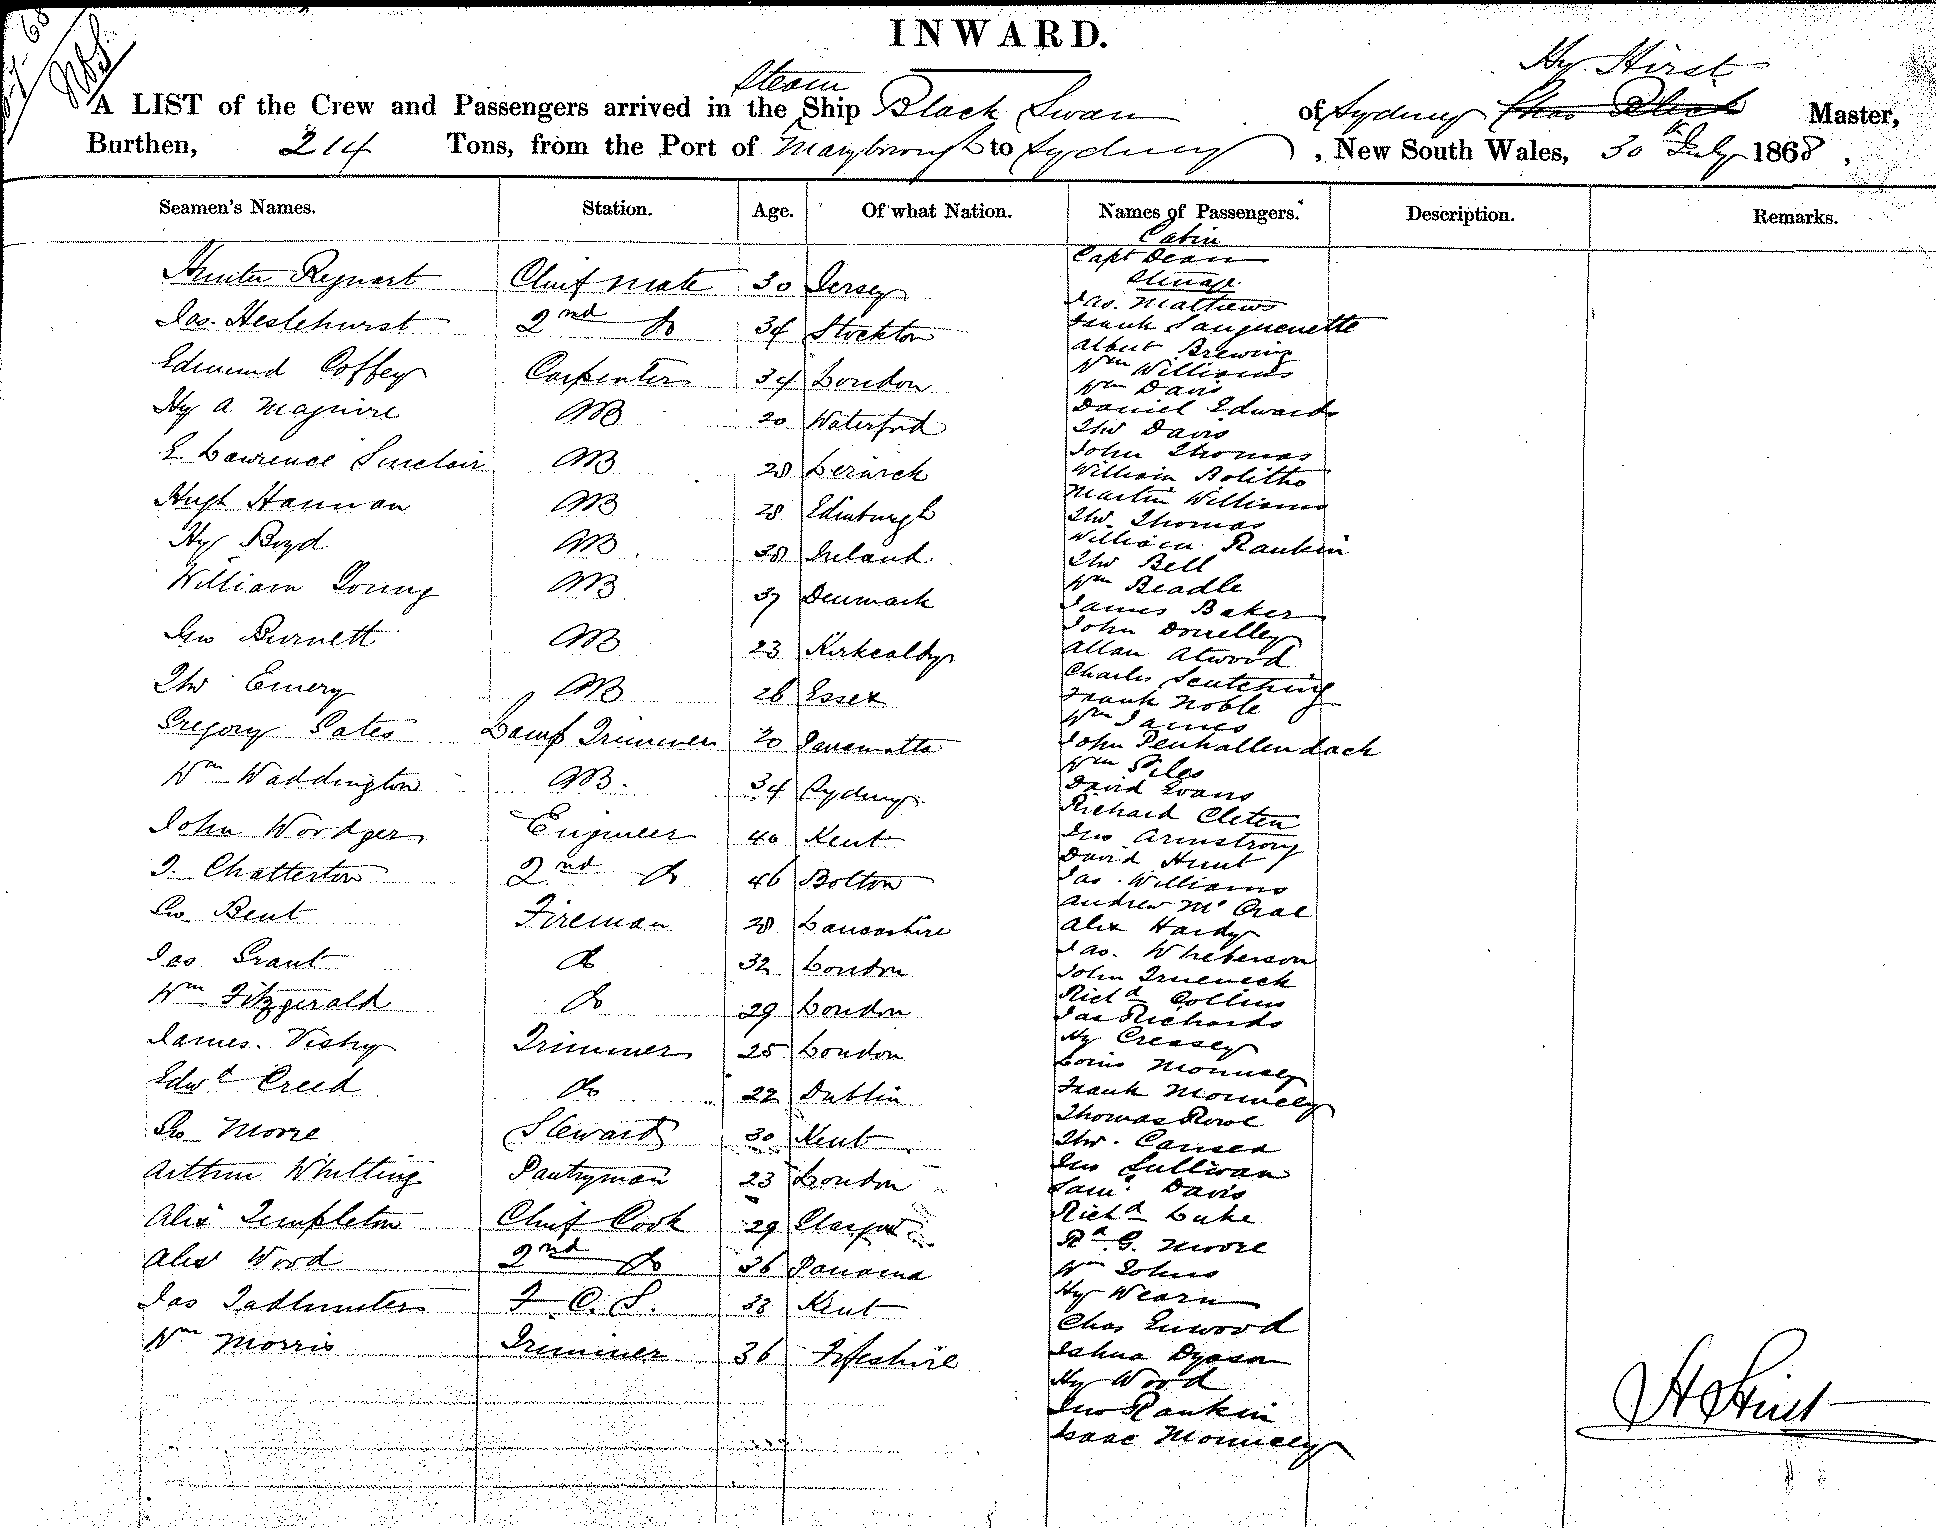 INWARD.
Hy Hirst
Steam
A LIST of the Crew and Passengers arrived in the Ship Black Swan of Sydney Master,
Burthen, 214 Tons, from the Port of Maryborough to Sydney, New South Wales, 30th July 1868,
Seamen's Names. Station. Age. Of what Nation. Names of Passengers. Description. Remarks.
Hunter Reynart Chief Mate 30 Jersey
Jas. Heslehurst 2nd do 34 Stockton
Edmund Coffey Carpenter 34 London
Hy A Maguire AB 20 Waterford
E. Lawrence Sinclair AB 28 Lerwick
Hugh Hannan AB 28 Edinburgh
Hy Boyd AB 28 Ireland
William Young AB 37 Denmark
Jno Burnett AB 23 Kirkcaldy
Thos Emery AB 26 Essex
Gregory Pates Lamp Trimmer 20 Paramatta
Wm Waddington AB. 34 Sydney
John Wordger Engineer 40 Kent
T. Chatterton 2nd do 46 Bolton
Geo Bent Fireman 28 Lancashire
Jas Grant do 32 London
Wm Fitzgerald do 29 London
James Vestry Trimmer 25 London
Edwd Creed do 22 Dublin
Geo Moore Steward 30 Kent
Arthur Whitting Pantryman 23 London
Alex Templeton Chief Cook 29 Glasgow
Alex Wood 2nd do 36 Panama
Jas Tadhunter F.C.S. 33 Kent
Wm Morris Trimmer 36 Fifeshire
Cabin
Capt Dean
Steerage
Jas. Mathews
Frank Sanguenette
Albert Brewing
Wm Williams
Wm Davis
Daniel Edwards
Thos Davis
John Thomas
William Bolitho
Martin Williams
Thos. Thomas
William Rankin
Thos Bell
Wm Beadle
James Baker
John Donelley
Allan Atwood
Charles Scutching
Frank Noble
Wm James
John Penhallendack
Wm Piles
David Evans
Richard Cleten
Jno Armstrong
David Hunt
Jas. Williams
Andrew McCral
Alex Hardy
Jas. Wheberson
John Trueneck
Richd Collins
Jas Richards
Hy Creasey
Louis Monnely
Frank Monnely
Thomas Rowe
Thos. Cansea
Jno Sullivan
Saml Davis
Richd Luke
Rd G. Moore
Wm Johns
Hy Wearn
Chas Enwood
Joshua Dyason
Hy Wood
Jno Rankin
Isaac Monnely
H Hirst